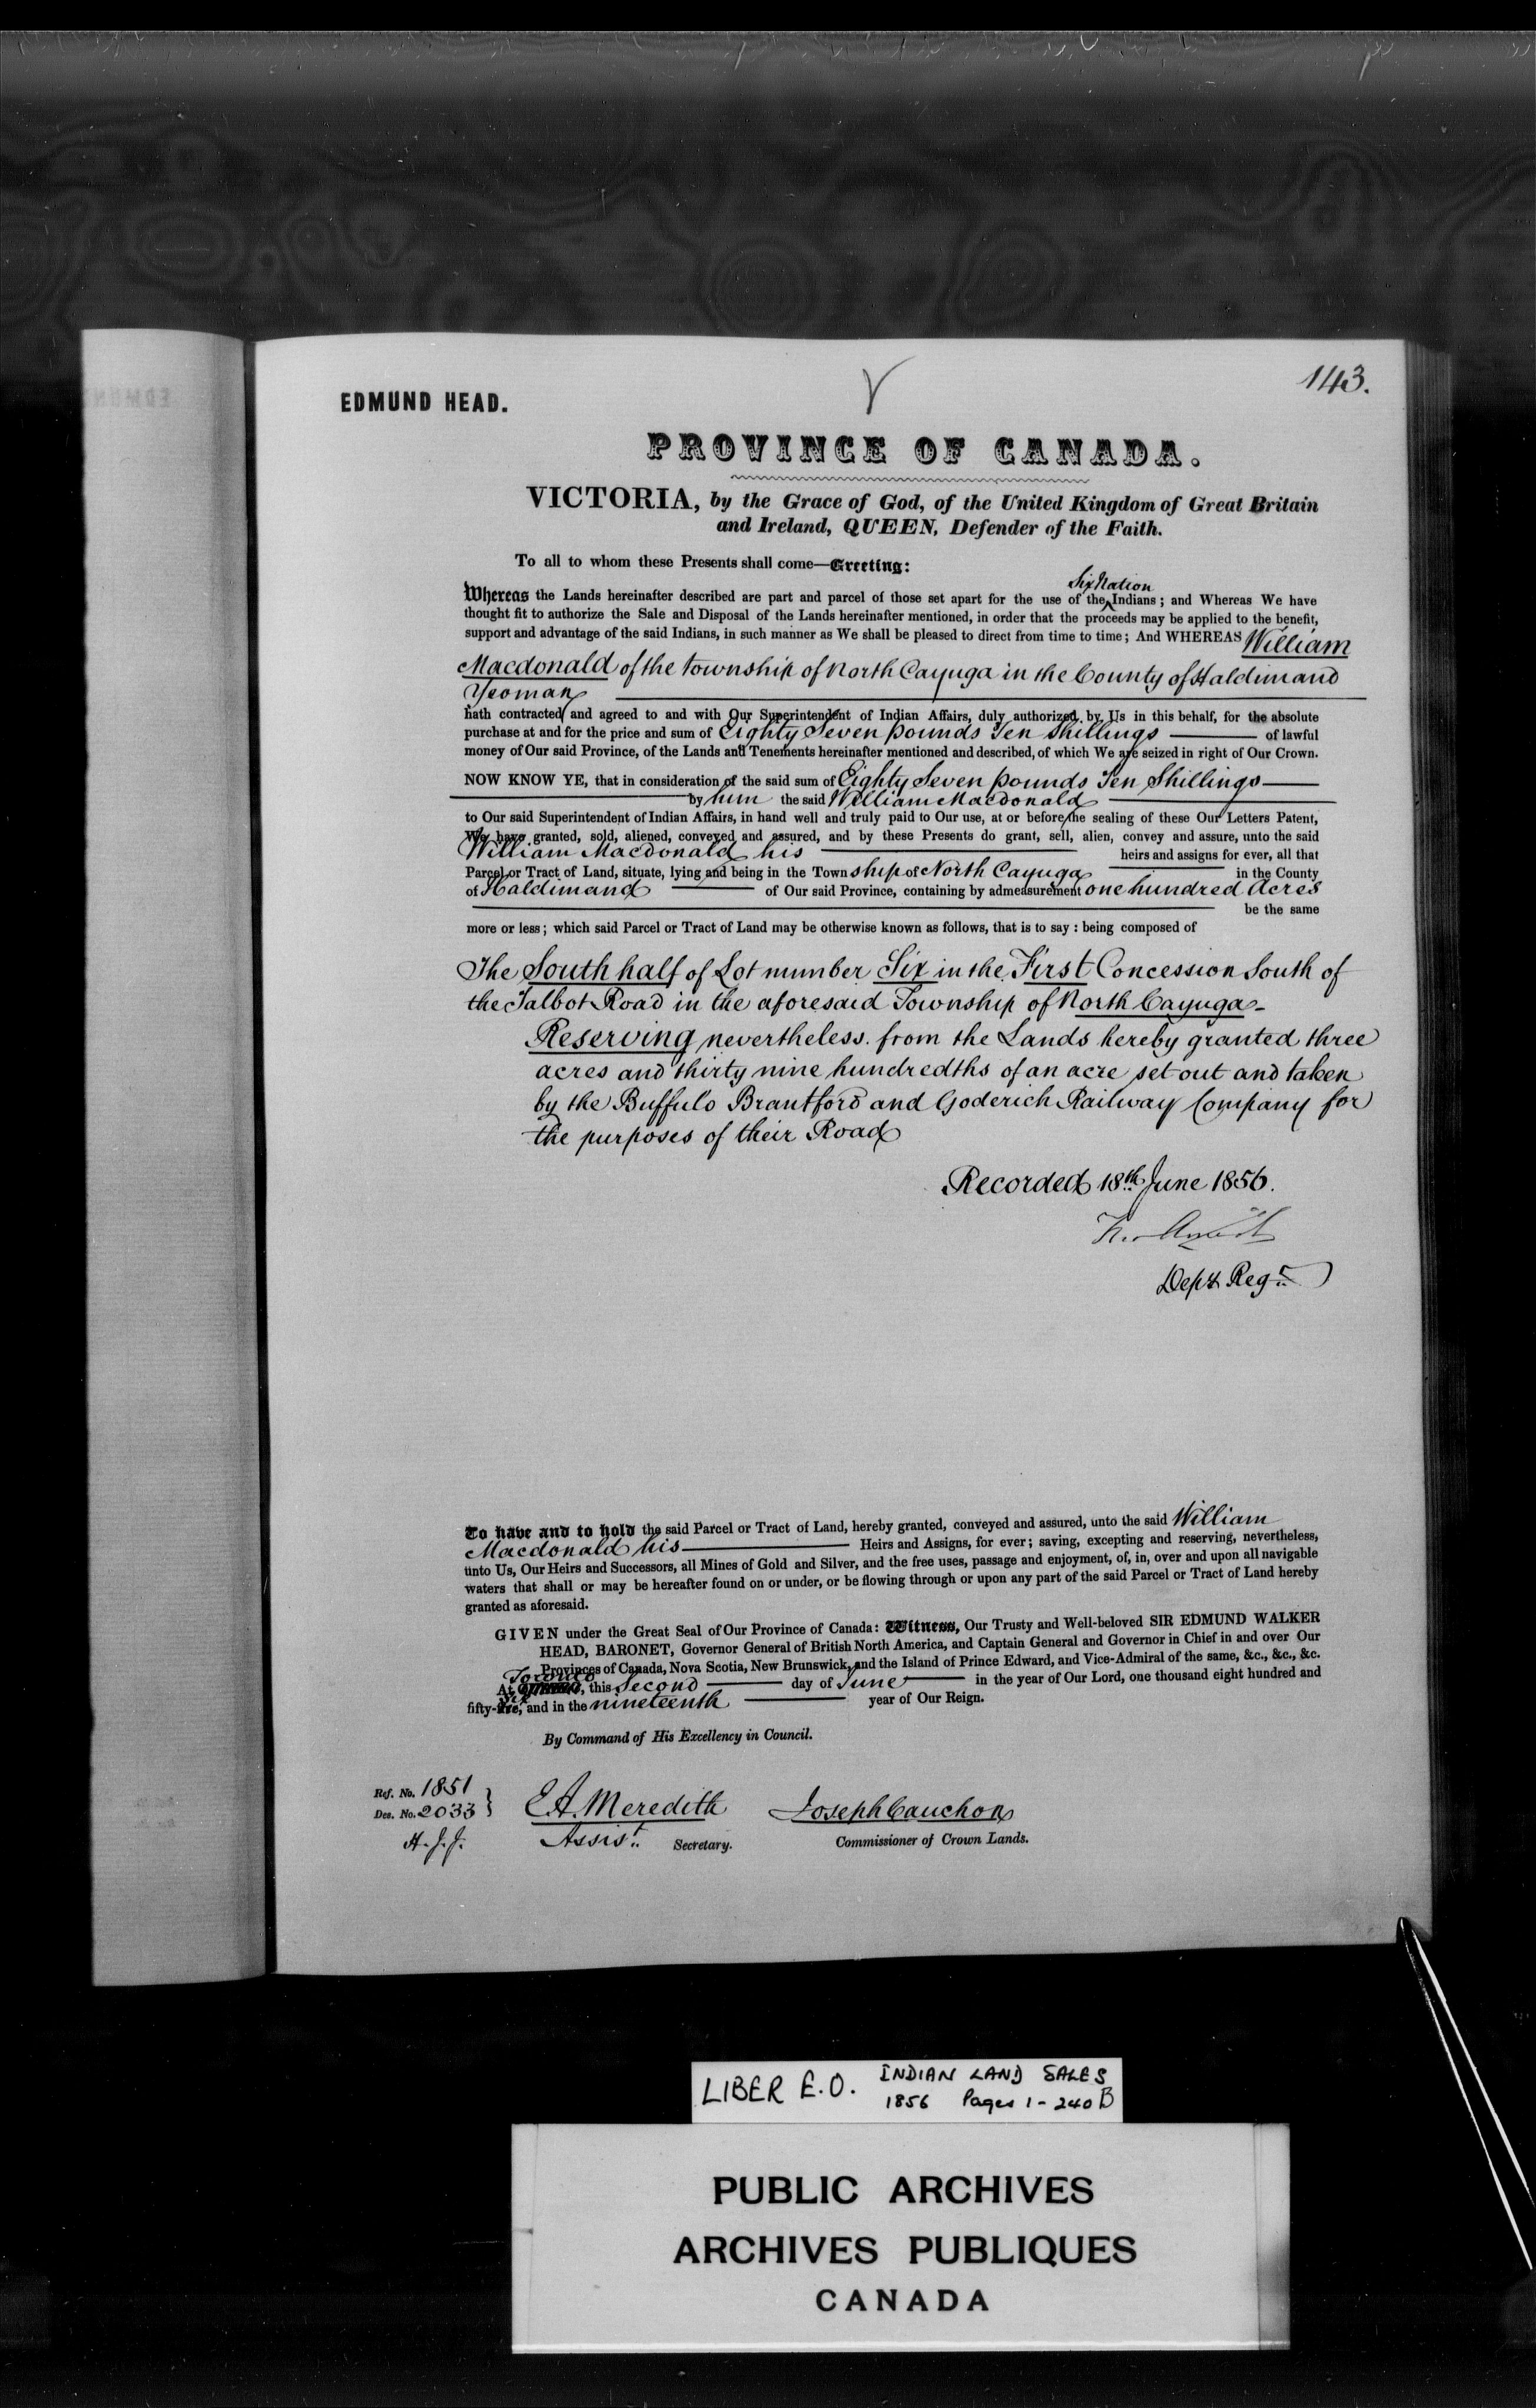 143.
EDMUND HEAD.
PROVINCE OF CANADA.
VICTORIA, by the Grace of God, of the United Kingdom of Great Britain
and Ireland, QUEEN, Defender of the Faith.
To all to whom these Presents shall come—Greeting:
Six Nation
Whereas the Lands hereinafter described are part and parcel of those set apart for the use of the ‸ Indians; and Whereas We have
thought fit to authorize the Sale and Disposal of the Lands hereinafter mentioned, in order that the proceeds may be applied to the benefit,
support and advantage of the said Indians, in such manner as We shall be pleased to direct from time to time; And WHEREAS William
Macdonald of the township of North Cayuga in the County of Haldimand
Yeoman
hath contracted and agreed to and with Our Superintendent of Indian Affairs, duly authorized by Us in this behalf, for the absolute
purchase at and for the price and sum of Eighty Seven pounds Ten Shillings of lawful
money of Our said Province, of the Lands and Tenements hereinafter mentioned and described, of which We are seized in right of Our Crown.
NOW KNOW YE, that in consideration of the said sum of Eighty Seven pounds Ten Shillings
by him the said William Macdonald
to Our said Superintendent of Indian Affairs, in hand well and truly paid to Our use, at or before the sealing of these Our Letters Patent,
We have granted, sold, aliened, conveyed and assured, and by these Presents do grant, sell, alien, convey and assure, unto the said
William Macdonald his heirs and assigns for ever, all that
Parcel or Tract of Land, situate, lying and being in the Town ship of North Cayuga in the County
of Haldimand of Our said Province, containing by admeasurement one hundred Acres
be the same
more or less; which said Parcel or Tract of Land may be otherwise known as follows, that is to say: being composed of
The South half of Lot number Six in the First Concession South of
the Talbot Road in the aforesaid Township of North Cayuga-
Reserving nevertheless from the Lands hereby granted three
acres and thirty nine hundredths of an acre set out and taken
by the Buffulo Brantford and Goderich Railway Company for
the purposes of their Road
Recorded 18th June 1856.
Depy Regr
To have and to hold the said Parcel or Tract of Land, hereby granted, conveyed and assured, unto the said William
Macdonald his Heirs and Assigns, for ever; saving, excepting and reserving, nevertheless,
unto Us, Our Heirs and Successors, all Mines of Gold and Silver, and the free uses, passage and enjoyment, of, in, over and upon all navigable
waters that shall or may be hereafter found on or under, or be flowing through or upon any part of the said Parcel or Tract of Land hereby
granted as aforesaid.
GIVEN under the Great Seal of Our Province of Canada: Witness, Our Trusty and Well-beloved SIR EDMUND WALKER
HEAD, BARONET, Governor General of British North America, and Captain General and Governor in Chief in and over Our
Provinces of Canada, Nova Scotia, New Brunswick, and the Island of Prince Edward, and Vice-Admiral of the same, &c., &c., &c.
At Toronto, this Second day of June in the year of Our Lord, one thousand eight hundred and
fifty-six, and in the nineteenth year of Our Reign.
By Command of His Excellency in Council.
Ref. No. 1851
Des. No. 2033
E A. Meredith
Joseph Cauchon
Assist. Secretary.
Commissioner of Crown Lands.
LIBER E.O. INDIAN LAND SALES
1856 Pages 1-240 B
PUBLIC ARCHIVES
ARCHIVES PUBLIQUES
CANADA